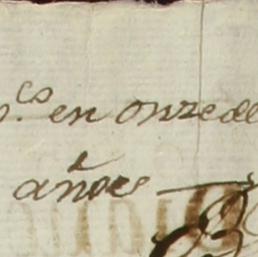 en onze de
años